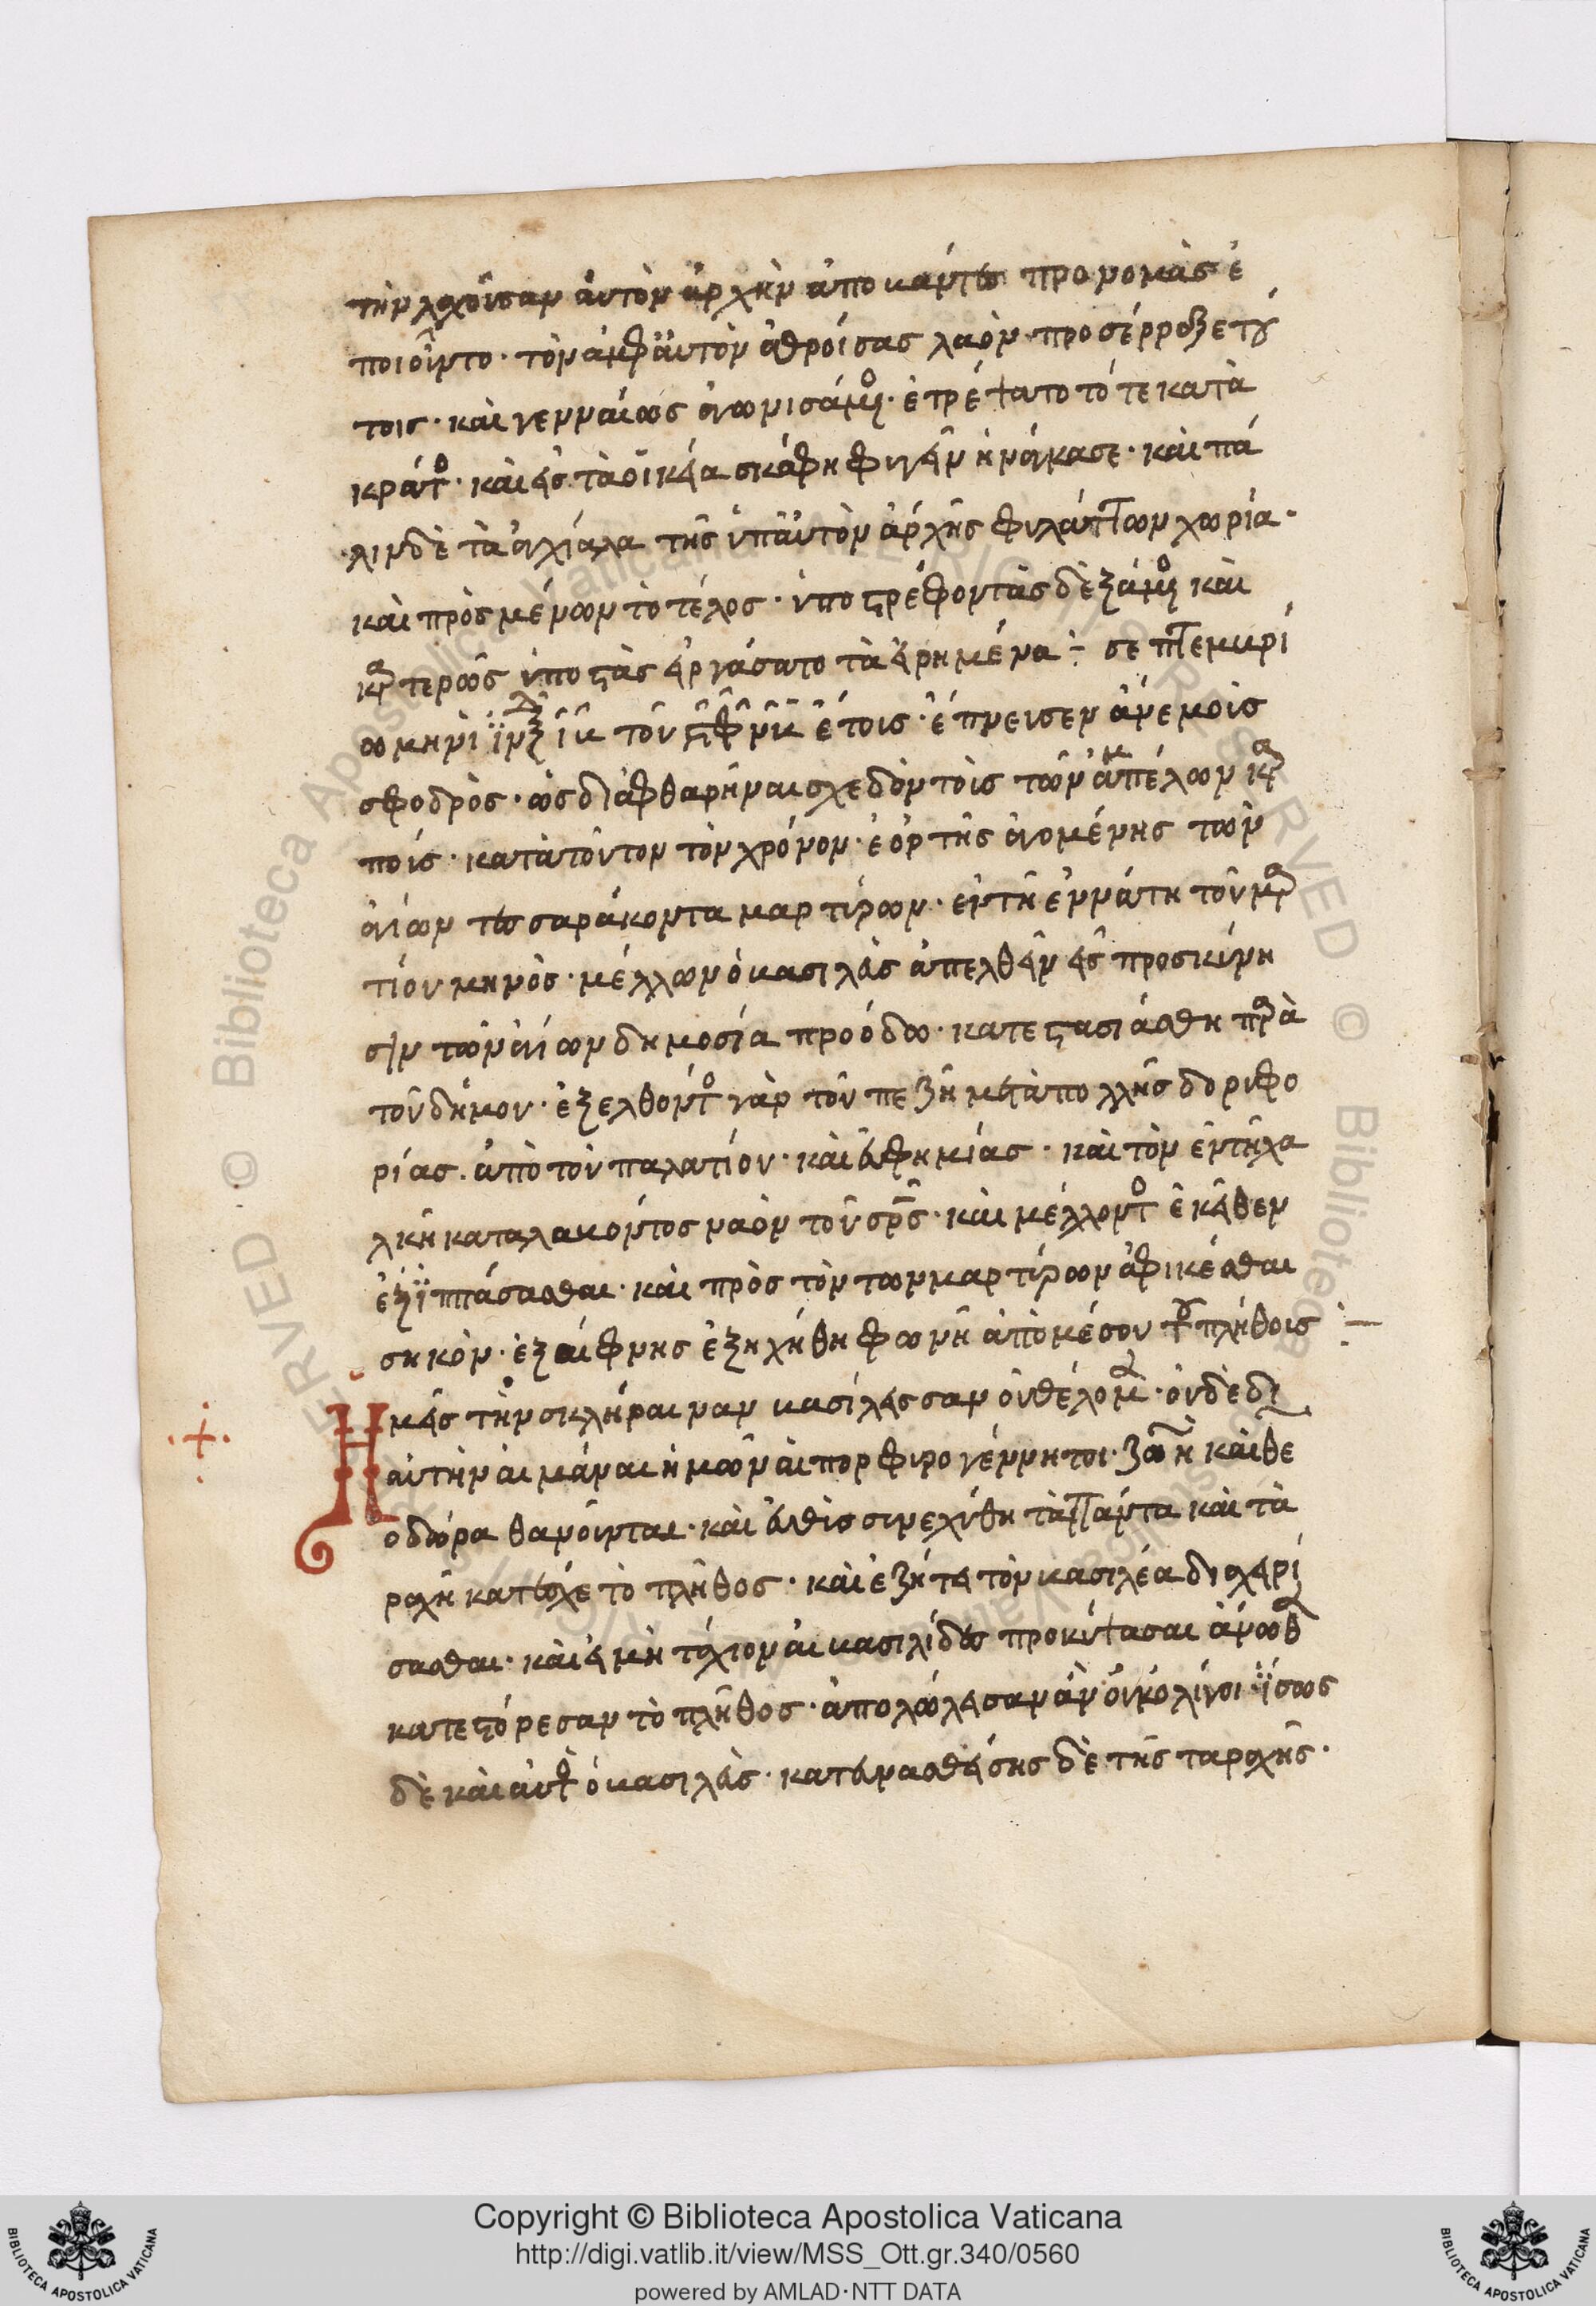 τὴν λαχοῦσαν ἀυτὸν ἀρχὴν ἀποβάντες προνομὰς ἐ
ποιοῦντο · τὸν ἀμφ ἀυτὸν ἀθροίσας λαὸν · προσέρραξε τού
τοις · καὶ γενναίως ἀγωνισάμενος · ἐτρέψατο τότε κατὰ
κράτος · καὶ εἰς τὰ οἰκεία σκάφη φυγεῖν ἠνάγκασε · καὶ πά
λιν δὲ τὰ ἀγχίαλα τῆς ὑπ ἀυτὸν ἀρχῆς φυλάττων χωρία ·
καὶ προσμένων τὸ τέλος · ὑποστρέφοντας δεξάμενος καὶ
καρτερῶς ὑποστὰς εἰργάσατο τὰ εἰρημένα ÷ σεπτεμβρί
ω μηνὶ ἰνδ ι β τοῦ ϛ φ ν β ἔτοις · ἔπνευσεν ἄνεμοις
σφοδρὸς · ὡς διαφθαρῆναι σχεδὸν τοὶς τῶν ἀμπέλων καρ
ποίς · κατὰ τοῦτον τὸν χρόνον · ἑορτῆς ἀγομένης τῶν
ἁγίων τεσσαράκοντα μαρτύρων · ἐν τῆ ἐννάτη τοῦ μαρ
τίου μηνὸς · μέλλων ὁ βασιλεὺς ἀπελθεῖν εἰς προσκύνη
σιν τῶν ἁγίων δημοσία προόδω · κατεστασιάσθη παρὰ
τοῦ δήμου · ἐξελθόντος γὰρ τοῦ πεζῆ μετὰ πολλῆς δορυφο
ρίας · ἀπὸ τοῦ παλατίου · καὶ ἐυφημίας · καὶ τὸν ἐν τῆ χα
λκῆ καταλαβόντος ναὸν τοῦ σρς · καὶ μέλλοντος ἐκεῖθεν
ἐξϊππάσασθαι · καὶ πρὸς τὸν τῶν μαρτύρων ἀφικέσθαι
σηκὸν · ἐξαίφνης ἐξηχήθη φωνὴ ἀπὸ μέσου τοῦ πλήθοις
Ημεῖς τὴν σκλήραιναν βασίλεισσαν οὐ θέλομεν · οὐδὲ δι
αυτὴν αἱ μάναι ἡμῶν ἁι πορφυρογέννητοι · ζωὴ καὶ θε
οδώρα θανοῦνται · καὶ ἐυθὶς συνεχύθη τὰ πάντα καὶ τὰ
ραχὴ κατεῖχε τὸ πλῆθος · καὶ ἐζήτει τὸν βασιλέα διαχειρί
σασθαι · καὶ εἰ μὴ τάχιον αἱ βασιλίδες προκύψασαι ἄνωθεν
κατεστόρεσαν τὸ πλῆθος · ἀπολώλεισαν ἂν οὐκ ὀλίγοι · ἴσως
δὲ καὶ ἀυτὸς ὁ βασιλεὺς · κατευνασθείσης δὲ τῆς ταραχῆς ·
Copyright © Biblioteca Apostolica Vaticana
http://digi.vatlib.it/view/MSS_Ott.gr.340/0560
powered by AMLAD·NTT DATA